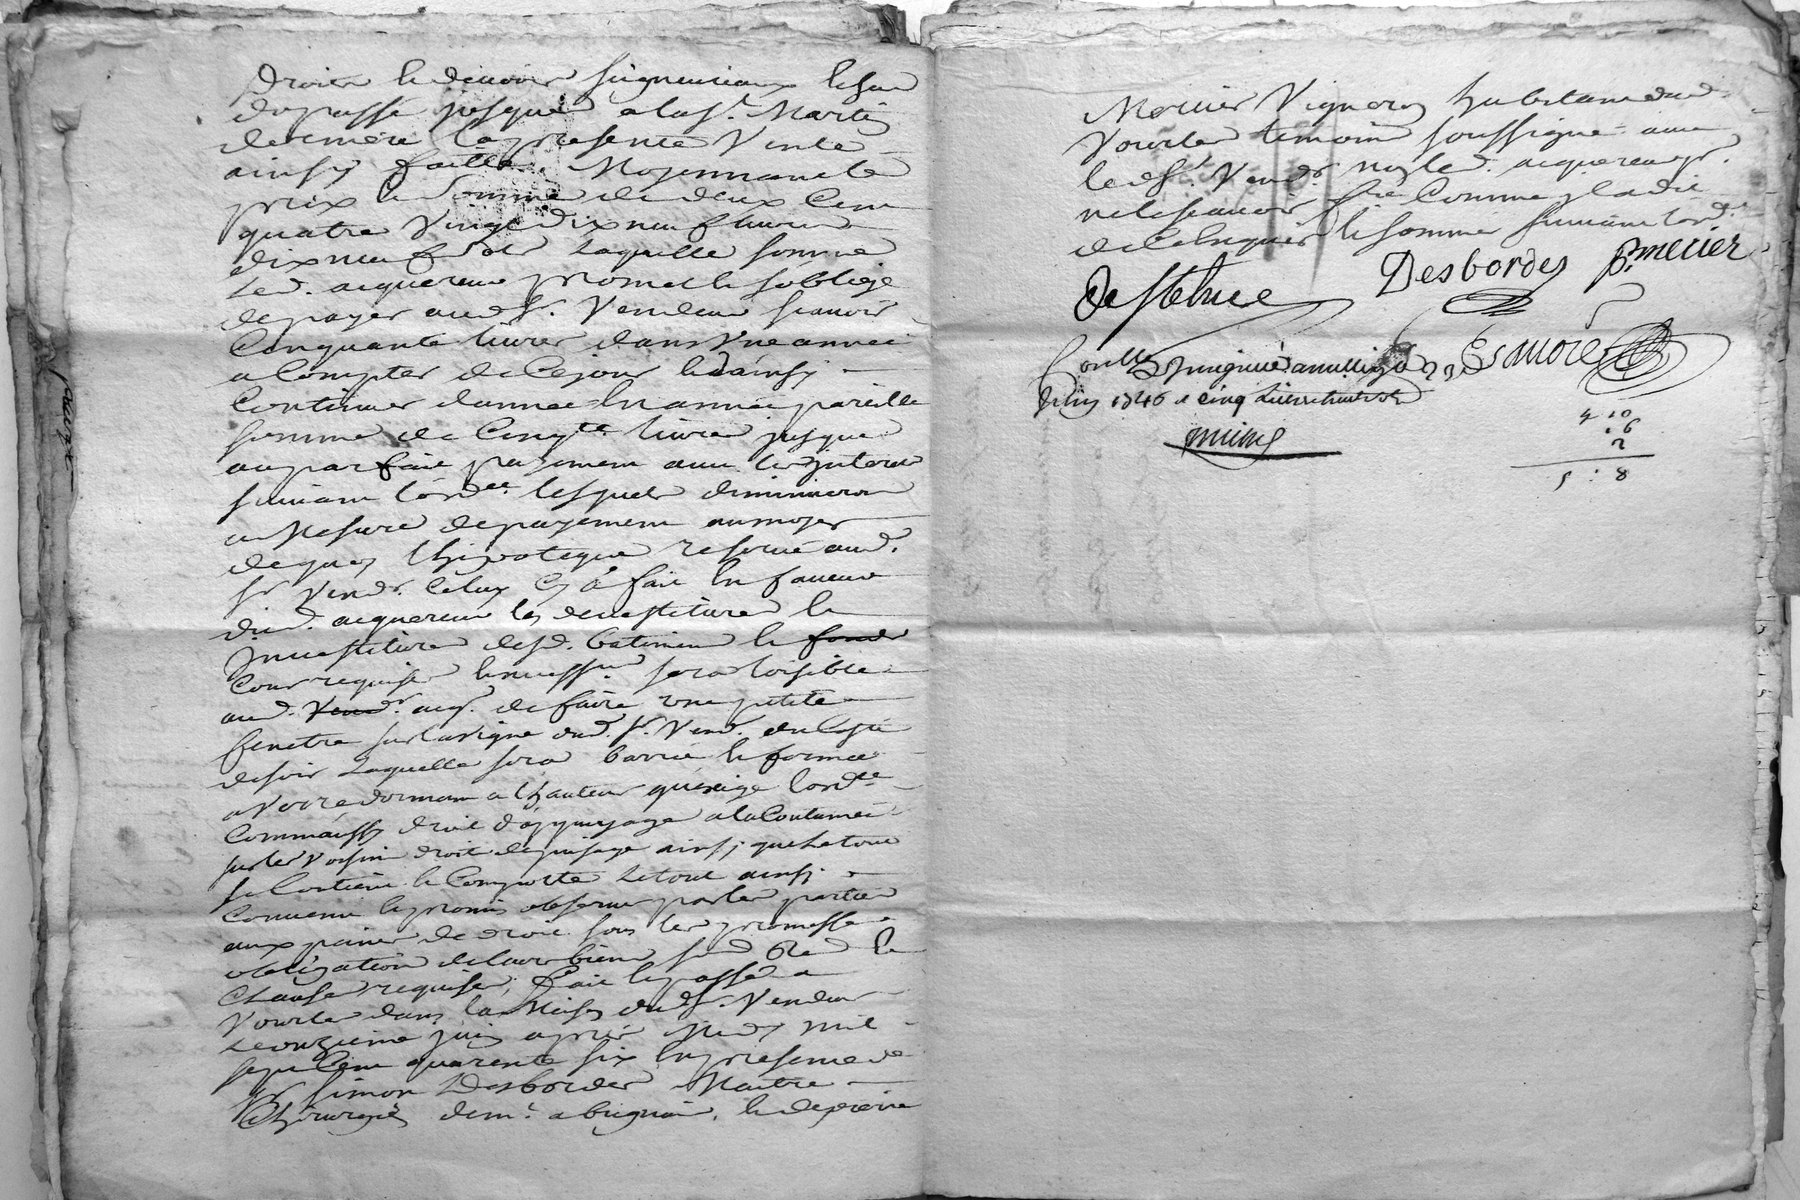 droits & devoirs seigneuriaux & sans
du passé jusques a la St. Martin
derniere la presente Vente
ainsy faitte Moyennant le
prix & Somme de deux Cent
quatre Vingt dix neuf livres
dix neuf sols Laquelle somme
Led. acquereur promet & soblige
de payer aud. Sr. Vendeur scavoir
Cinquante livres dans Vne année
a Compter de Ce jour & ainsy
Continuer dannée En année pareille
somme de Cinqte livres jusques
au parfait payement avec les jnterets
suivant lordce lesquels diminueront
a Mesure de payement au moyen
dequoy lhipoteque reservé aud.
Sr Vendr. Celuy Cy a fait En faveur
dud. acquereur les devestiture &
Jnvestiture desd. batiment & fonds
Cour requises sera loisible
aud. Vendr. acqr. de faire vne petite
fenetre sur la vigne dud. Sr. Vend. du Coté
de soir Laquelle sera barrée & formée
a Verre dormant a lhauteur qu'exige lordce
Comm'aussy droit d'appuyage a la Coutumée
sur les Voisins droit de puisage ainsy que le tout
se Contient & Comporte Le tout ainsy
Convenu & promis observer par les parties
aux peines de droit sous les promesse
obligation de leurs biens &
Clauses requises, fait & passé a
Vourles dans la Maison dud. Sr. Vendeur
Le onzieme juin apres Midy mil
sept Cent quarente six En presence de
Sr Simon Desbordes Maitre
Chirurgien demt. a brignais, &
Mercier Vigneron habitant dud.
Vourles temoins soussignés avec
led. Sr. Vendr. non led. acquereur
ne le scavoir fre Comme jl a dit
de Ce Enquis & sommé suivant lord.
Desbordes p. mecier
Con lle a millery le
juin 1746 R cinq Livres huit sols
4 10
. 16
2
5 : 8